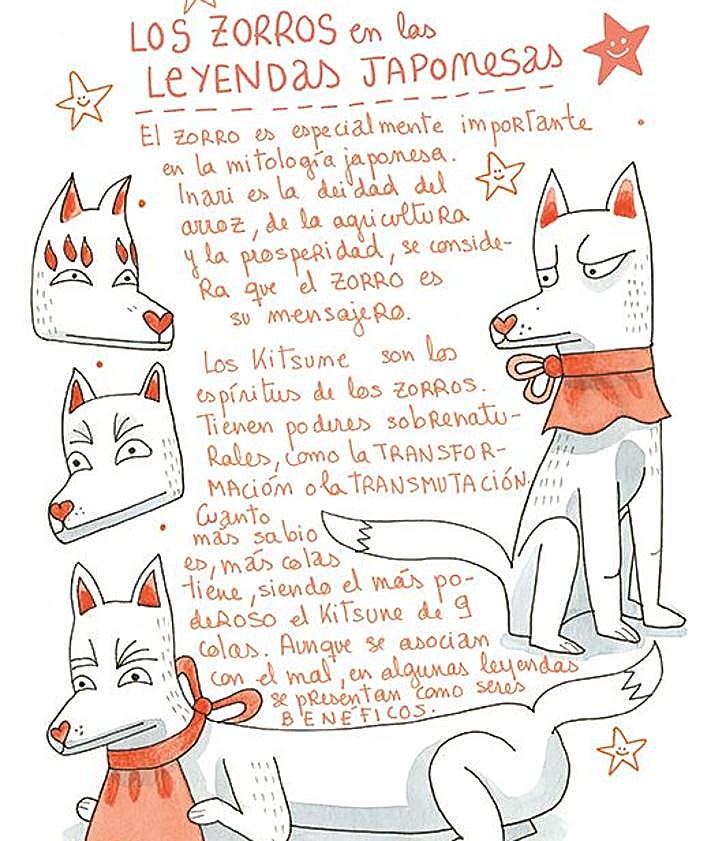 LOS ZORROS en las
LEYENDAS JAPONESAS
El ZORRO es especialmente importante
en la mitología japonesa.
Inari es la deidad del
arroz, de la agricultura
y la prosperidad, se conside-
Ra que el ZORRO es
su mensajero.
Los Kitsume son los
espíritus de los ZORROS.
Tienen poderes sobrenatu-
Rales, como la TRANSFOR-
MAción o la TRANSMUTACIÓN.
Cuanto
más sabio
es, más colas
tiene, siendo el más po-
deROSO el Kitsune de 9
colas. Aunque se asocian
con el mal, en algunas leyendas
se presentan como seres
BENEFICOS.